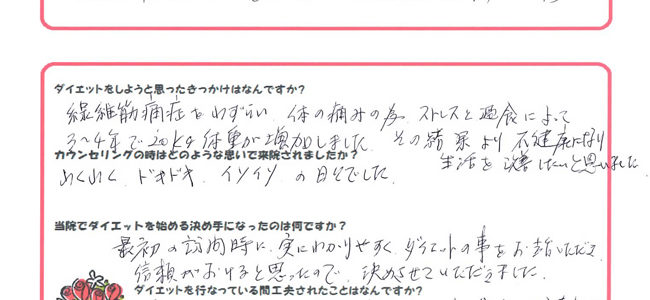 ダイエットをしようと思ったきっかけはなんですか？
線維筋痛症をわずらい、体の痛みの為、ストレスと過食によって
3〜4年で20kg体重が増加しました。その結果より不健康になり
生活を改善したいと思いました。
カウンセリングの時はどのような思いで来院されましたか？
わくわく、ドキドキ、イソイソ、の日々でした。
当院でダイエットを始める決め手になったのは何ですか？
最初の訪問時に、実にわかりやすく、ダイエットの事をお話いただき
信頼がおけると思ったので、決めさせていただきました。
ダイエットを行なっている間工夫されたことはなんですか？